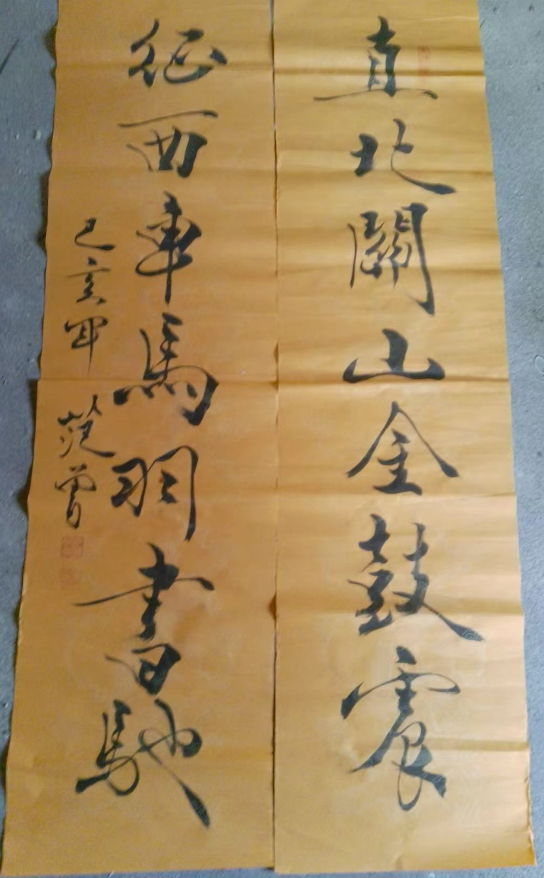 直北關山金鼓震
征西車馬羽書馳
己亥年
范曾